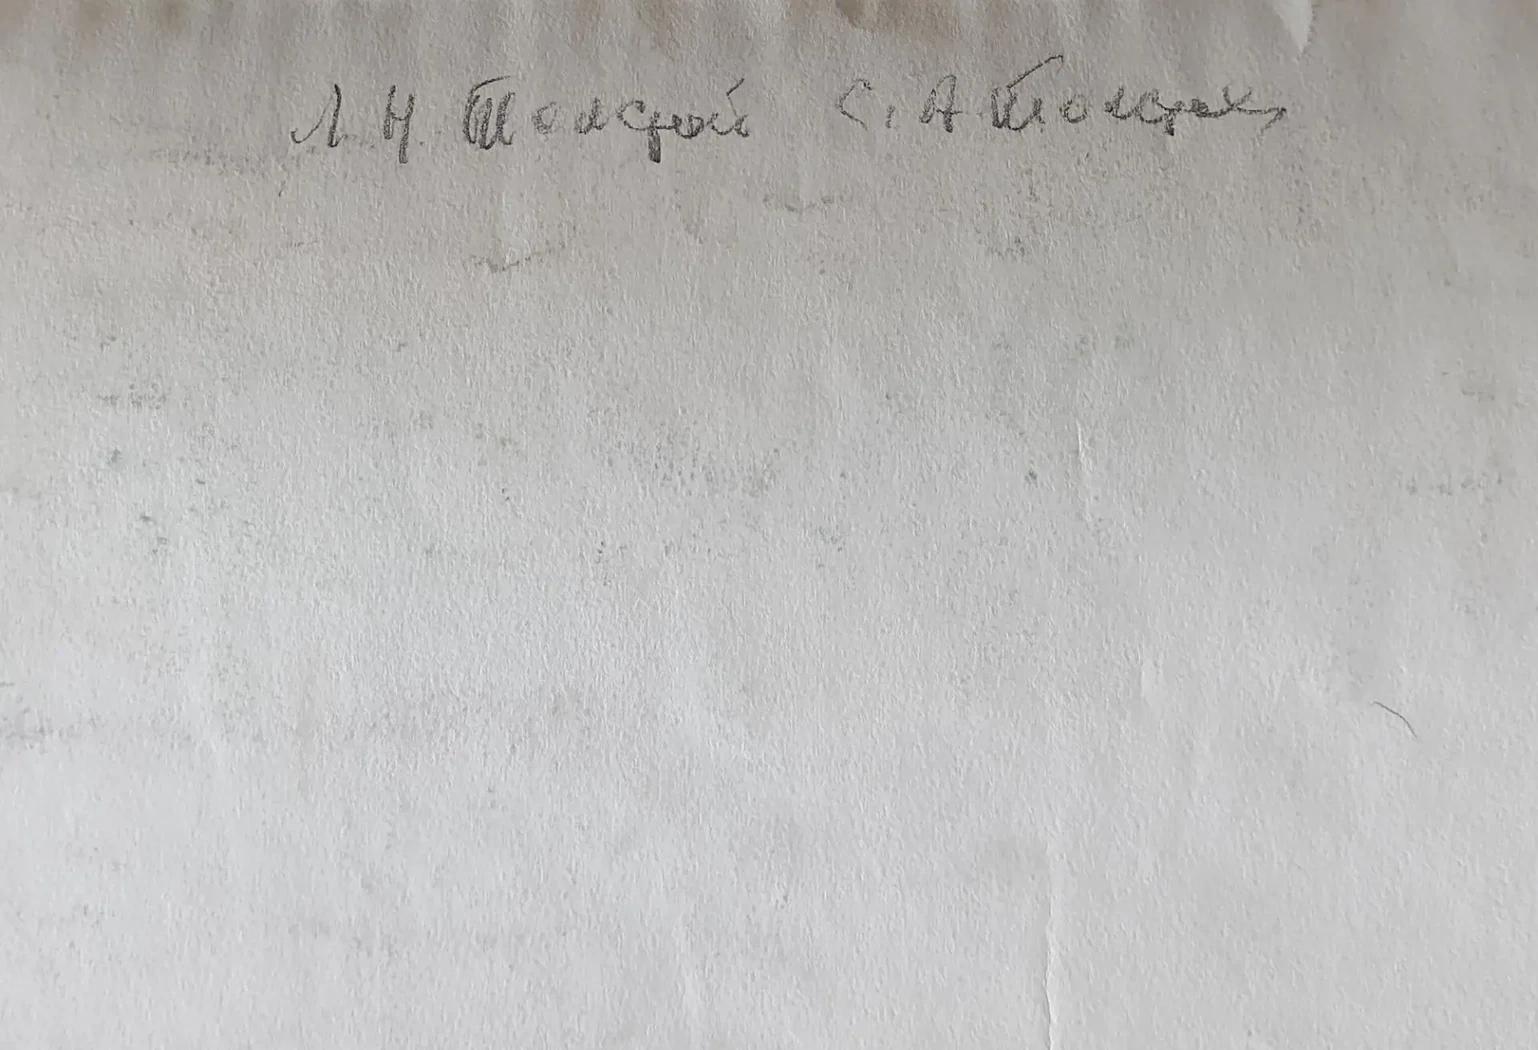 Л Н Толстой С. А Толстая